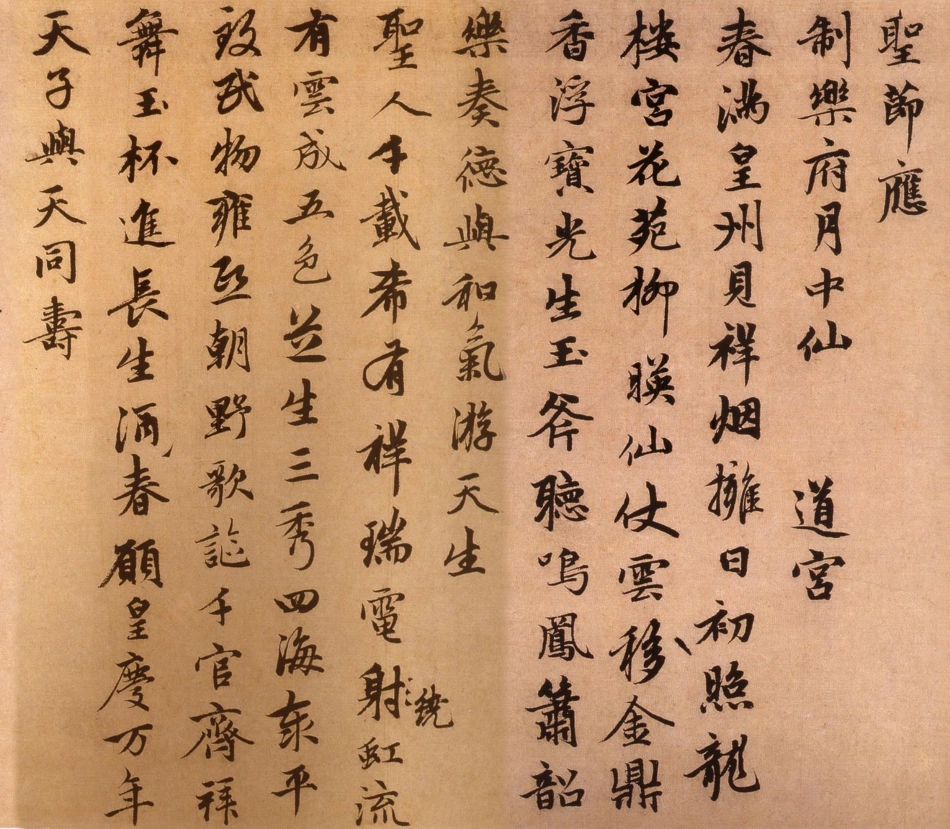 聖節應
制樂府月中仙　道宮
春滿皇州見祥烟擁日初照龍
樓宮花苑柳暎仙仗雲移金鼎
香浮寶光生玉斧聽鳴鳳簫韶
樂奏德與和氣游天生
聖人千載希有祥瑞電射虹流
繞
有雲成五色芝生三秀四海泰平
致民物雍熙朝野歌謳千官齊拜
舞玉杯進長生酒春願皇慶万年
天子與天同壽